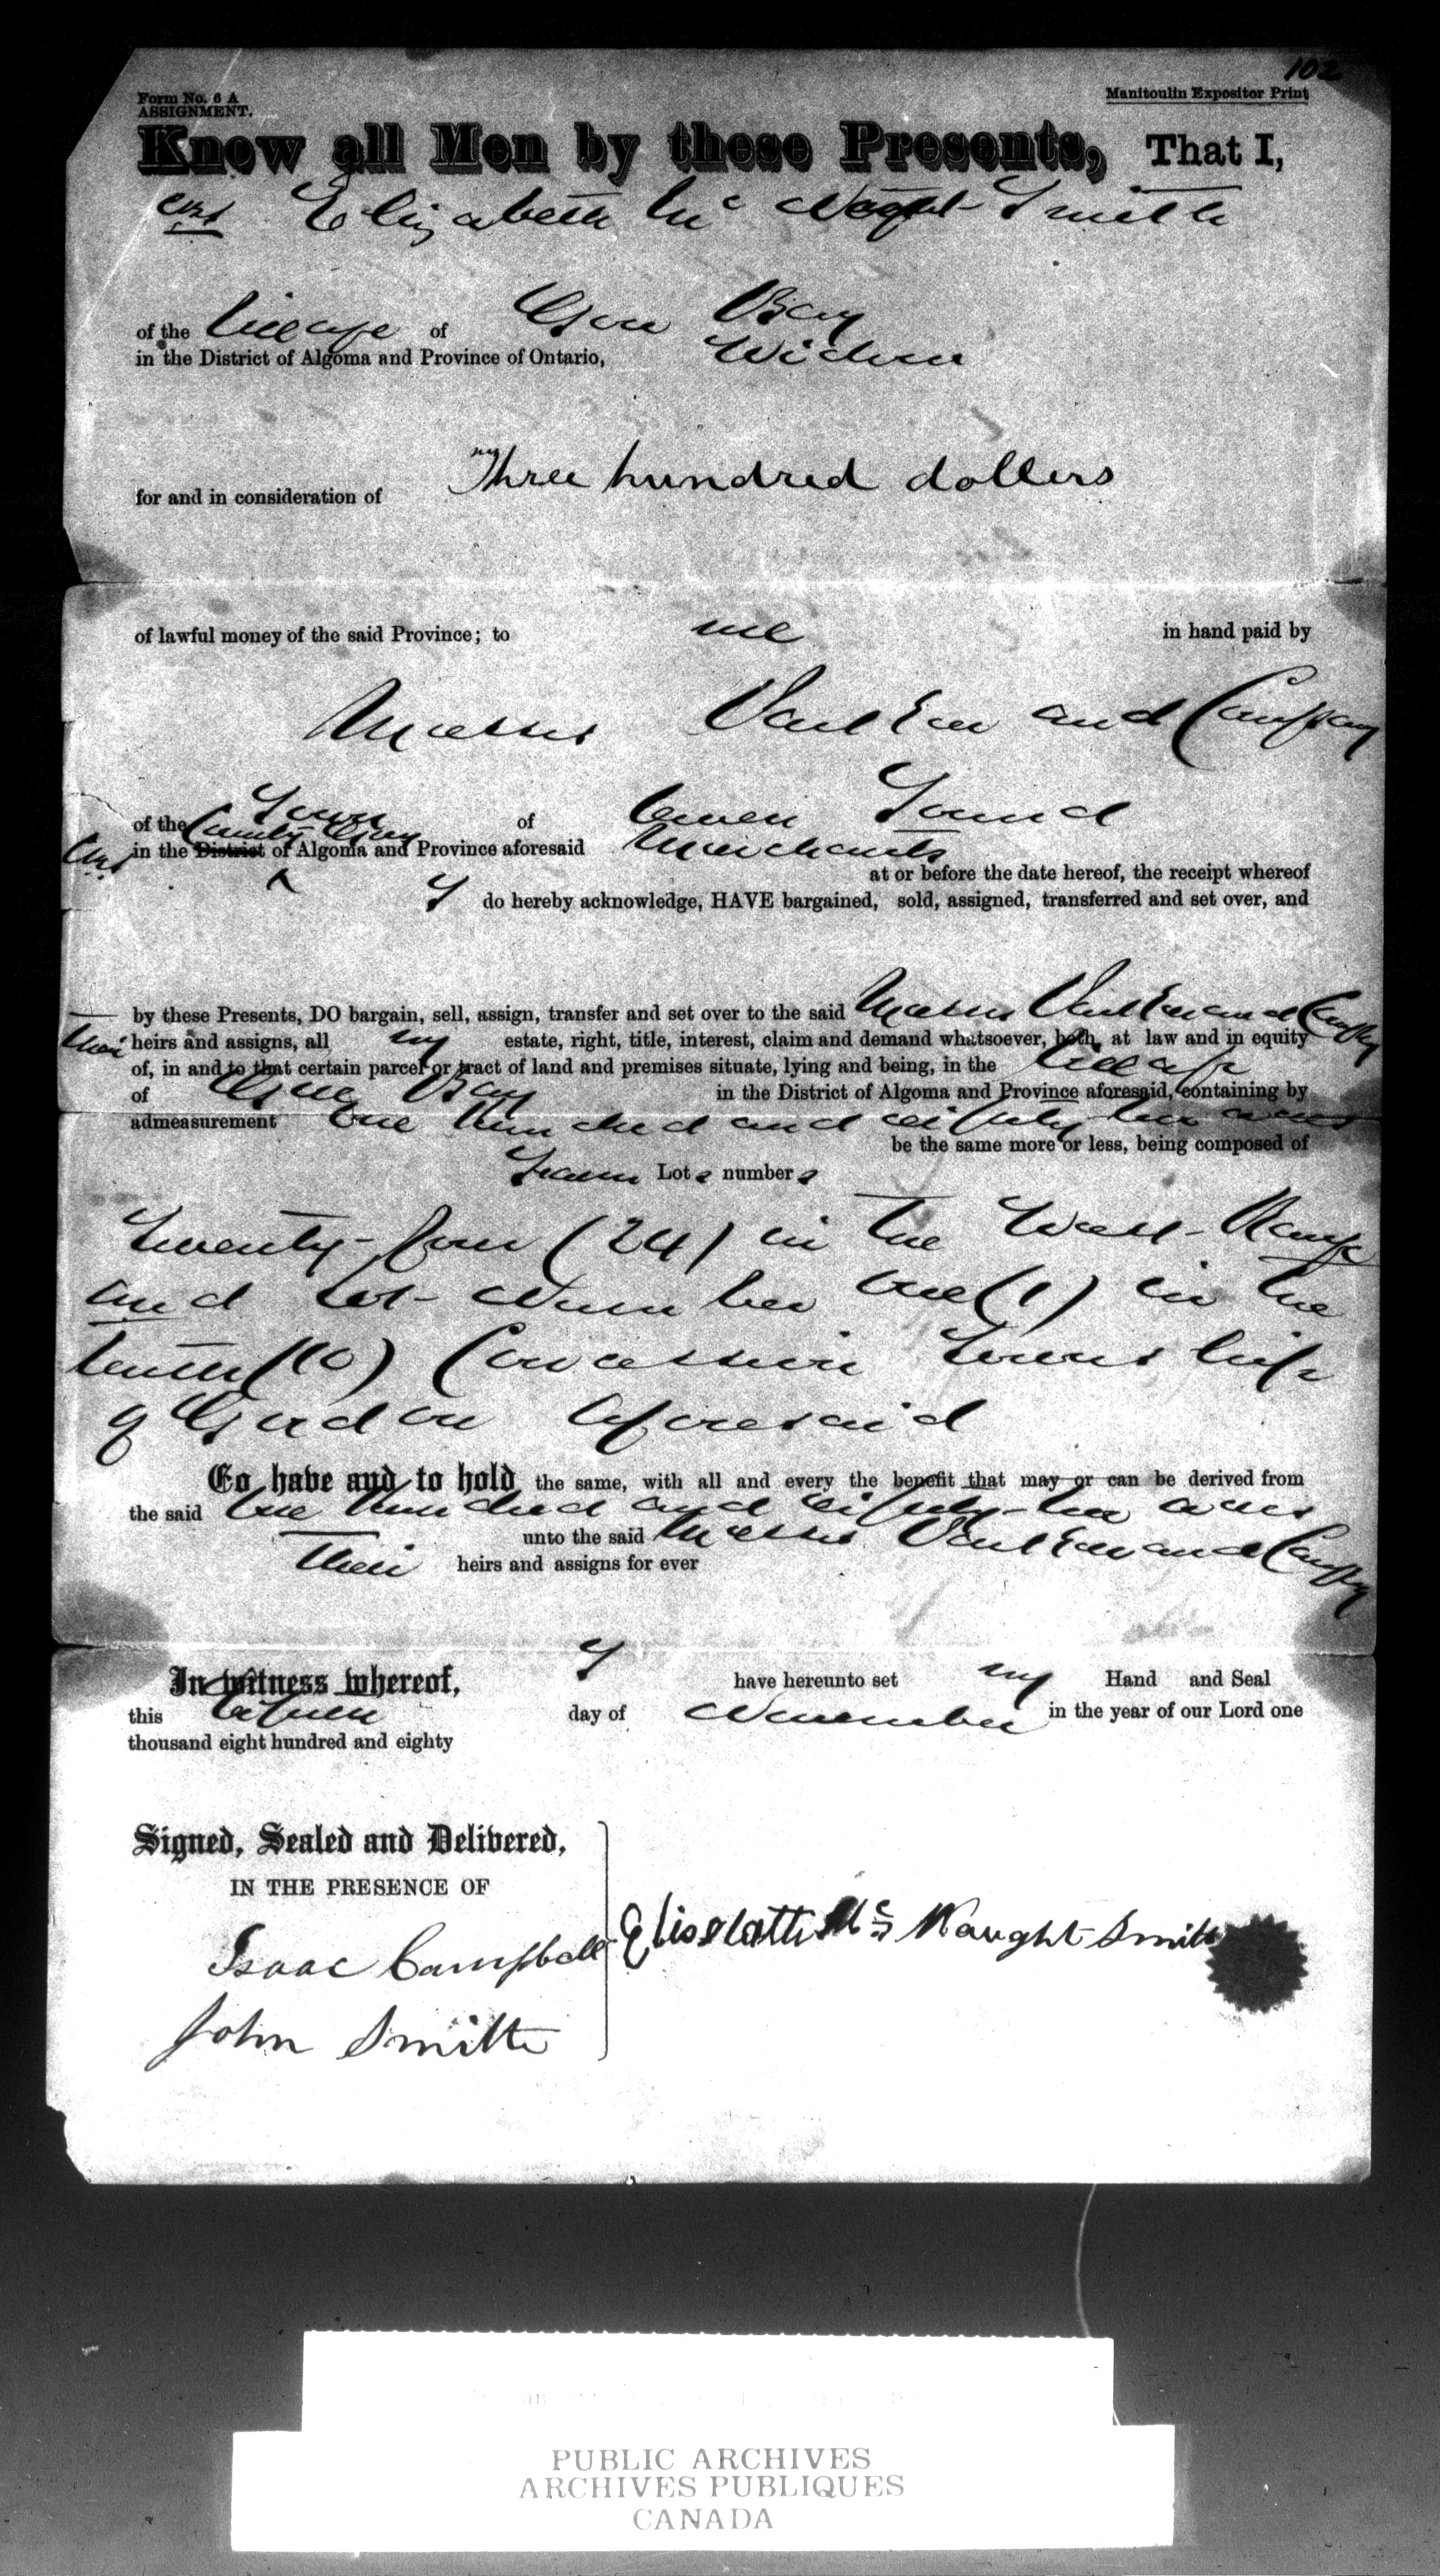 102
Form No. 6 A
ASSIGNMENT.
Manitoulin Expositor Print
Know all Men by these Presents, That I,
Elizabeth Mc Naught Smith
of the Village of Gore Bay
in the District of Algoma and Province of Ontario, Widow
for and in consideration of Three hundred dollers
of lawful money of the said Province; to me in hand paid by
Messrs and Company
of the Town of Owen Sound
County Grey
in the District of Algoma and Province aforesaid Merchants
at or before the date hereof, the receipt whereof
I do hereby acknowledge, HAVE bargained, sold, assigned, transferred and set over, and
by these Presents, DO bargain, sell, assign, transfer and set over to the said Messrs and Company
their heirs and assigns, all my estate, right, title, interest, claim and demand whatsoever, both at law and in equity
of, in and to that certain parcel or tract of land and premises situate, lying and being, in the Village
of Gore Bay in the District of Algoma and Province aforesaid, containing by
admeasurement One hundred and eighty two acres
be the same more or less, being composed of
Lots numbers
Twenty-four (24) in the West Range
and Lot Number One (1) in the
tenth (10) Concession Township
of Gordon Aforesaid
To have and to hold the same, with all and every the benefit that may or can be derived from
the said One hundred and eighty-two acres
unto the said Messrs and Company
Their heirs and assigns for ever
In witness whereof, I have hereunto set my Hand and Seal
this day of November in the year of our Lord one
thousand eight hundred and eighty
Signed, Sealed and Delivered,
IN THE PRESENCE OF
Isaac Campbell
Mc Naught Smith
John Smith
PUBLIC ARCHIVES
ARCHIVES PUBLIQUES
CANADA